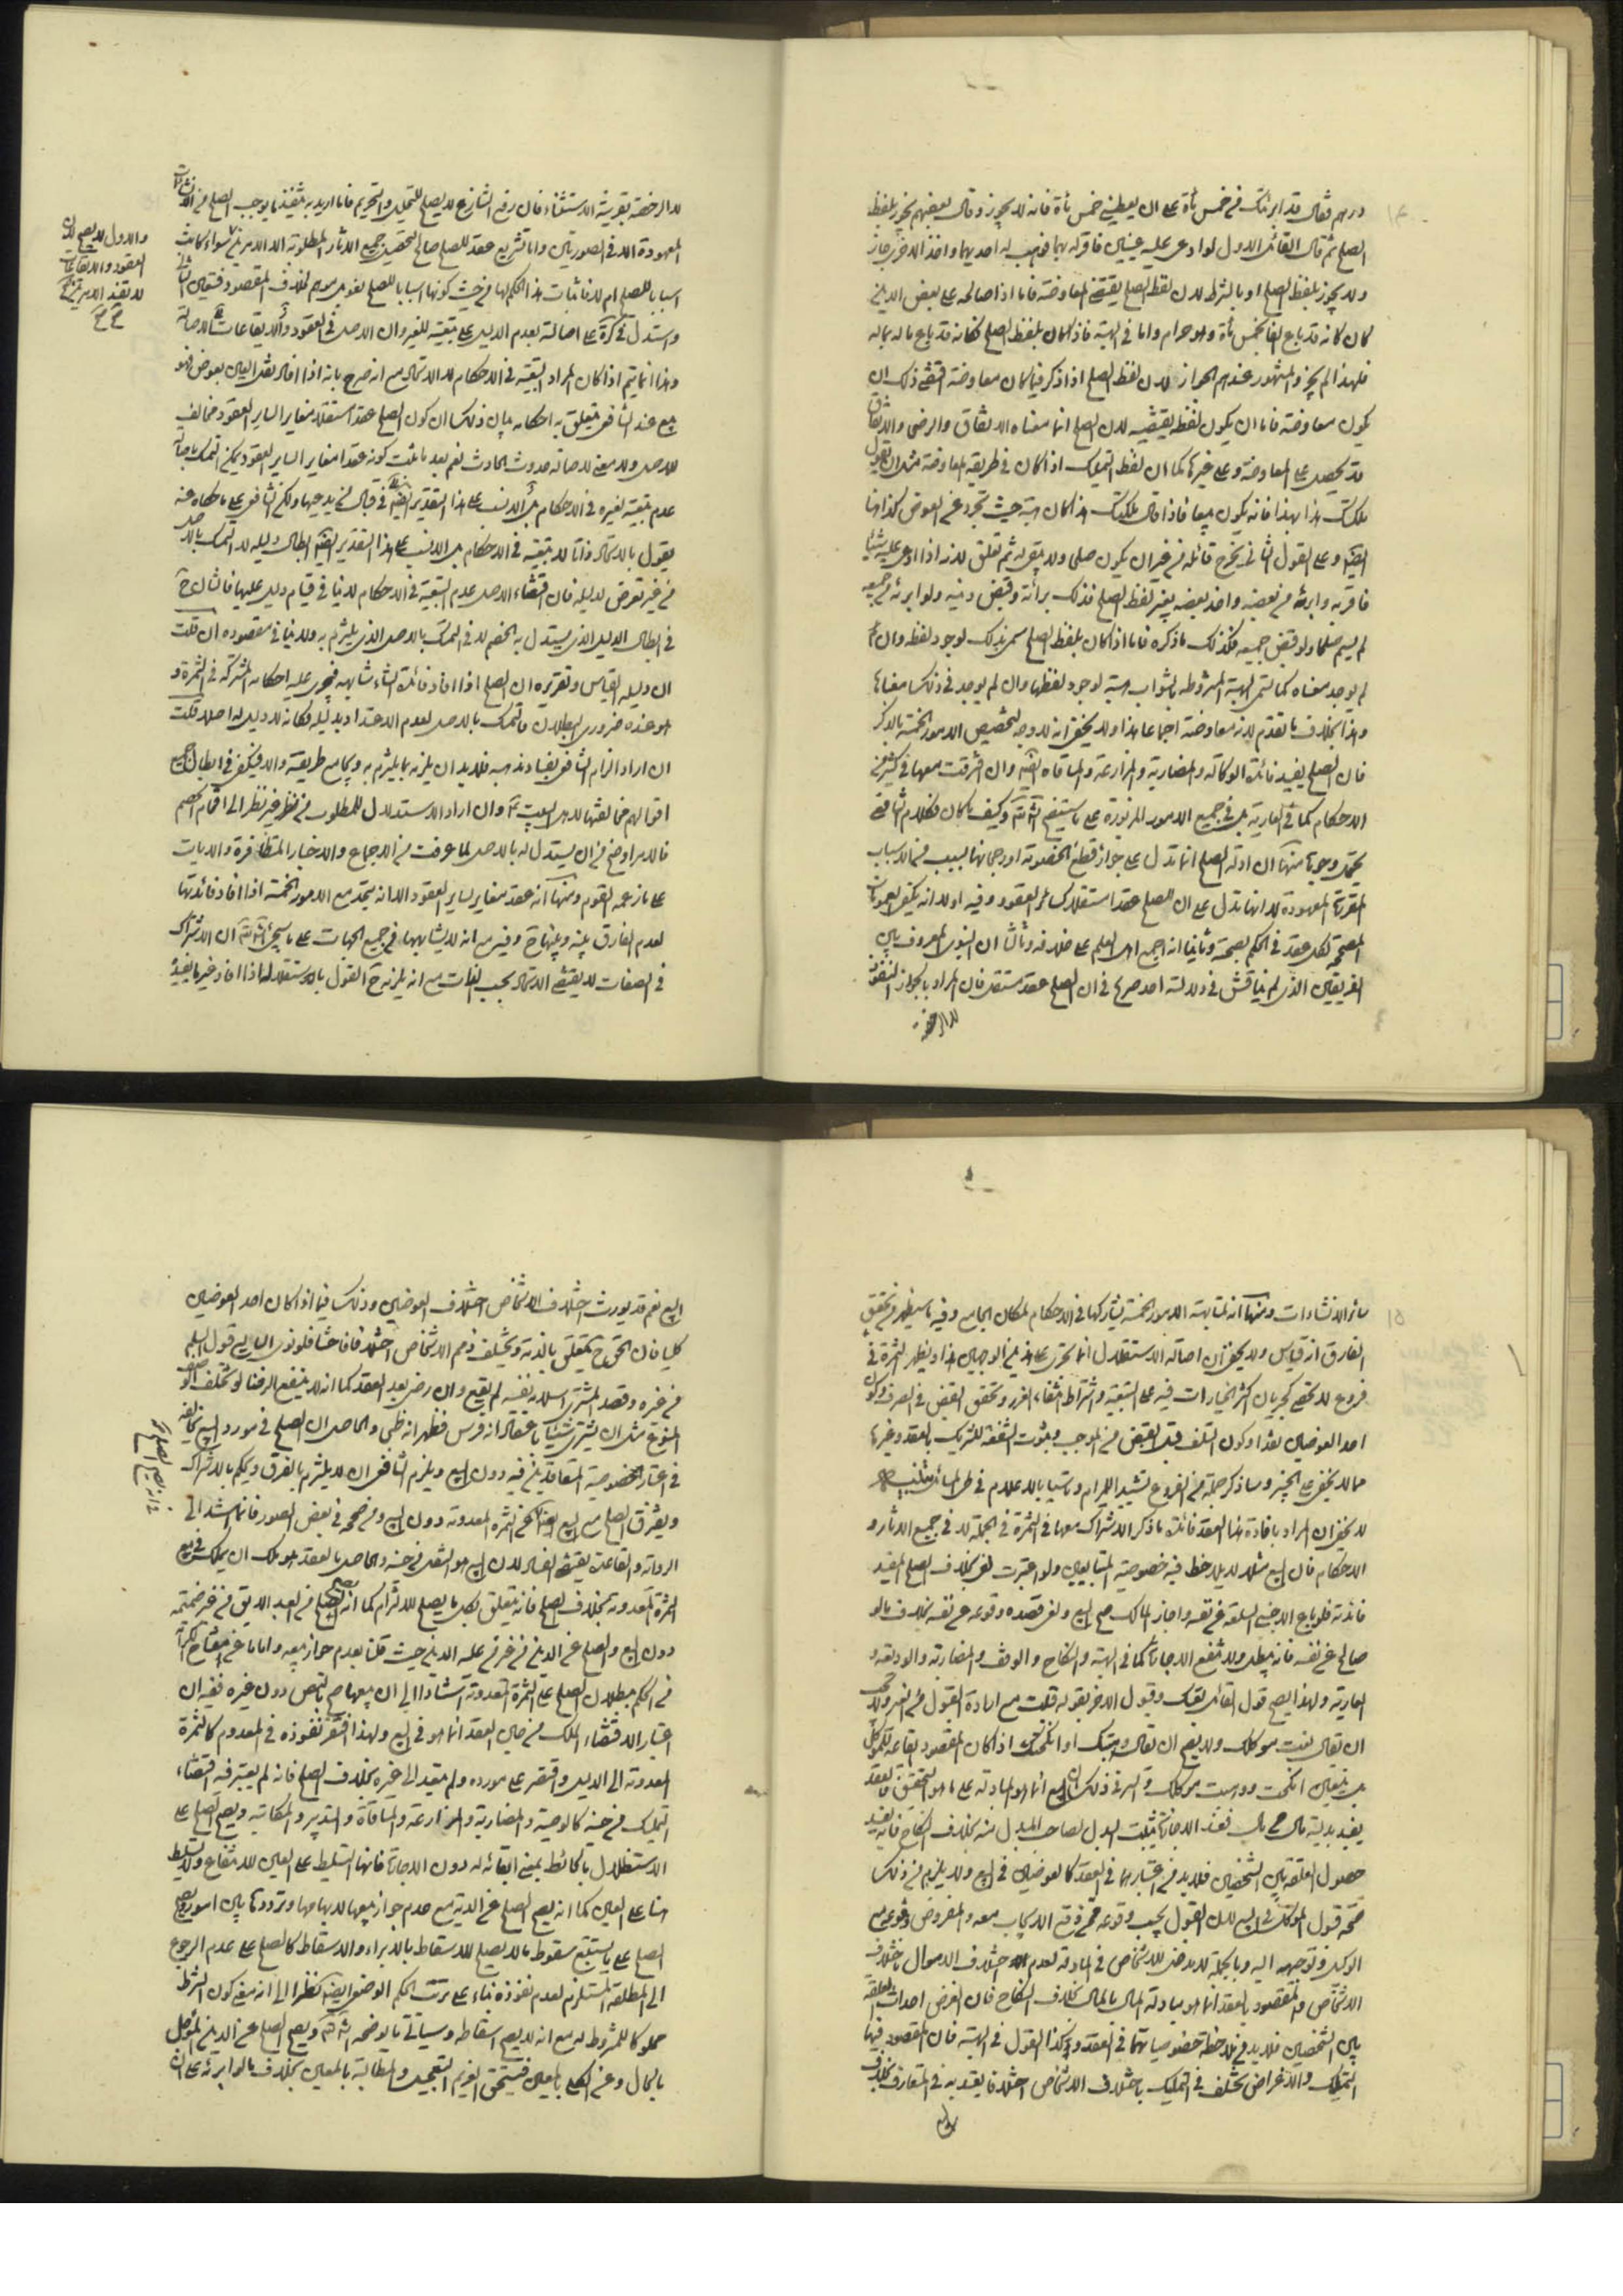 درهم فقال قد ابرئتك من خمس مأة على ان يعطيني خمس مأة فانه لا يجوز وقال بعضهم يجوز بلفظ
الصلح ثم قال القائل الاول لو ادعى عليه عينين فاقر له بهما فوهب له احديهما واخذ الاخرى جاز
ولا يجوز بلفظ الصلح او بالشرط لان لفظ الصلح يقتضي المعاوضة فاما اذا صالحه على بعض الدين
كان كانه قد باع الفا بخمس مأة وهو حرام واما في الهبة فاذا كان بلفظ الصلح فكانه قد باع ماله بماله
فلهذا لم يجز والمشهور عندهم الجواز لان لفظ الصلح اذا ذكر فيما كان معاوضة اقتضى ذلك ان
يكون معاوضة فاما ان يكون لفظه يقتضيه لان الصلح انما معناه الاتفاق والرضى والاتفاق
قد يحصل على المعاوضة وعلى غيرها كما ان لفظ التمليك اذا كان في طريقه المعاوضة مثل ان يقول
ملكتك هذا بهذا فانه يكون بيعا فاذا قال ملكتك هذا كان هبة حيث تجرد عن العوض كذا هنا
ايضا وعلى القول الثاني يخرج قائله من غير ان يكون صلحا ولا يبقى له ثم تعلق لانه اذا ادعى عليه شيئا
فاقر به وابرأه من بعضه واخذ بعضه بغير لفظ الصلح فذلك برائة وقبض دينه ولو ابرئه من جميعه
لم يسم صلحا ولو قبض جميعه فكذلك ما ذكره فاما اذا كان بلفظ الصلح سمى بذلك لوجود لفظه وان
لم يوجد معناه كما تسمى الهبة المشروطة بالثواب هبة لوجود لفظها وان لم يوجد في ذلك معناها
وهذا بخلاف ما تقدم لانه معاوضة اجماعا هذا ولا يخفى انه لا وجه لتخصيص الامور الخمسة بالذكر
فان الصلح يفيد فائدة الوكالة والمضاربة والمزارعة والمساقاة ايضا وان افترقت معها في كثير من
الاحكام كما في العارية بل في جميع الامور المزبورة على ما سيتضح انشاء الله وكيف ما كان فكلام الشافعي
يحتمل وجوها منها ان ادلة الصلح انما تدل على جواز قطع الخصومة او رجحانها بسبب من الاسباب
المقررة المعهودة لا انها تدل على ان للصلح عقدا مستقلا كسائر العقود وفيه اولا انه يكفي العمومات
المصححة لكل عقد في الحكم بصحته وثانيا انه اجمع اهل العلم على خلافه وثالثا ان النبوي المعروف بين
الفريقين الذي لم يناقش في دلالته احد صريح في ان الصلح عقد مستقل فان المراد بالجواز النفوذ
لا الرخصة
لا الرخصة بقرينة الاستثناء فان رفع الشارع لا يصلح للتحليل والتحريم فانما اريد به تنفيذ ما يوجب الصلح من
المعهودة الا في الصورتين واما تشريع عقد للصلح صالح لتحصيل جميع الاثار المطلوبة الا الامرين سواء كانت
اسبابا للصلح ام لا فاثبات هذا الحكم لها من حيث كونها اسبابا للصلح لغو بل موهم لخلاف المقصود فتعين الثاني
واستدل في كرة على اصالته بعدم الدليل على تبعيته للغير وان الاصل في العقود والايقاعات الاصالة
وهذا انما يتم اذا كان المراد التبعية في الاحكام لا الاندراج مع انه صرح بانه اذا افاد نقل العين بعوض فهو
بيع عند الشافعي يتعلق به احكامه بيان ذلك ان كون الصلح عقدا مستقلا مغايرا لساير العقود مخالف
للاصل ولا معنى لاصالة حدوث الحادث نعم بعد ما ثبت كونه عقدا مغايرا لساير العقود يمكن التمسك باصالة
عدم تبعيته لغيره في الاحكام بل الانسب على هذا التقدير ايضا في قبال من يدعيها ولكن الشافعي على ما حكاه عنه
يقول بالاندراج ذاتا لا بتبعيته في الاحكام بل الانسب على هذا التقدير ايضا ابطال دليله لا التمسك بالاصل
من غير تعرض لدليله فان اقتضاء الاصل عدم التبعية في الاحكام لا ينافي قيام دليل عليها
في ابطال الدليل الذي يستدل به الخصم لا في التمسك بالاصل الذي يلتزم به ولا ينافي مقصوده ان قلت
ان دليله القياس وتقريره ان الصلح اذا افاد فائدة الشىء شابهه فيجرى عليه احكامه المشتركة في الثمرة و
هو عنده ضروري البطلان فتمسك بالاصل لعدم الاعتداد بدليله فكانه لا دليل له اصلا قلت
ان اراد الزام الشافعي بفساد مذهبه فلا بد ان يلزمه بما يلتزم به ويجامع طريقته والا فيكفي في ابطال جميع
اقوالهم مخالفتها لاهل البيت ع وان اراد الاستدلال للمطلوب من غير نظر الى افحام الخصم
فالامر اوضح من ان يستدل له بالاصل لما عرفت من الاجماع والاخبار المتظافرة والايات
على ما زعمه القوم ومنها انه عقد مغاير لساير العقود الا انه يتحد مع الامور الخمسة اذا افاد فائدتها
لعدم الفارق بينه وبينها ح وفيه مع انه لا يشابهها في جميع الجهات على ما سيجئ انشاء الله ان الاشتراك
في الصفات لا يقتضي الاندراج بحسب الذات مع انه يلزمه ح القول بالاستقلال له اذا افاد غير ما يفيده
والاول لا يصح لان
العقود والايقاعات
لا تفيد الامرين
صح صح
سائر الانشاءات ومنها انه لمشابهته الامور الخمسة يشاركها في الاحكام لمكان الجامع وفيه ما سيظهر من تحقق
الفارق انه قياس ولا يخفى ان اصالة الاستقلال انما تجرى على هذين الوجهين هذا وتظهر الثمرة في
فروع لا تحصى كجريان اكثر الخيارات فيه على التبعية واشتراط انتفاء الغرر وتحقق القبض في الصرف وكون
احد العوضين نقدا وكون التلف قبل القبض من الموجب وثبوت الشفعة للشريك بالعقد وغيرها
مما لا يخفى على الخبير وسنذكر جملة من الفروع تشييدا للمرام وتاسيا بالاعلام في طي المسائل
لا يخفى ان المراد بافادة هذا العقد فائدة ما ذكر الاشتراك معها في الثمرة في الجملة لا في جميع الاثار و
الاحكام فان البيع مثلا لا يلاحظ فيه خصوصية المتبايعين ولو اعتبرت لغى بخلاف الصلح المفيد
فائدته فلو باع الاجنبي السلعة عن نفسه واجاز المالك صح البيع ولغى قصده وقوعه عن نفسه بخلاف ما لو
صالح عن نفسه فانه يبطل ولا تنفع الاجازة كما في الهبة والنكاح والوقف والمضاربة والوديعة و
العارية ولهذا يصح قول القائل بعتك وقبول الاخر بقوله قبلت مع ارادة القبول عن الغير ولا يجب
ان يقال بعت موكلك ولا يصح ان يقال وهبتك او انكحتك اذا كان المقصود ايقاعه للموكل
بل يتعين انكحت ووهبت موكلك والسر في ذلك ان البيع انما هو المبادلة على ما هو التحقيق فالعقد
يفيد بدلية مال عن مال فنفذ الاجازة فيثبت البدل لصاحب المبدل منه بخلاف النكاح فانه يفيد
حصول العلقة بين الشخصين فلا بد من اعتبارهما في العقد كالعوضين في البيع ولا يلزم من ذلك
صحة قبول الموكل في البيع لان القبول يجب وقوعه ممن وقع الايجاب معه والمفروض وقوعه مع
الوكيل وتوجهه اليه وبالجملة لا مدخل للاشخاص في المبادلة لعدم اختلاف الاموال باختلاف
الاشخاص والمقصود بالعقد انما هو مبادلة المال بالمال بخلاف النكاح فان الغرض احداث العلقة
بين الشخصين فلا بد من ملاحظة خصوصياتهما في العقد وكذا القول في الهبة فان المقصود فيها
التمليك والاغراض تختلف في التمليك باختلاف الاشخاص اختلافا يعتد به في المتعارف بخلاف
البيع
البيع نعم قد يورث اختلاف الاشخاص اختلاف العوضين وذلك فيما اذا كان احد العوضين
كليا فان الحق ح يتعلق بالذمة وتختلف ذمم الاشخاص اختلافا فاحشا فلو نوى البايع قبول السلم
من غيره وقصد المشتري اسلامه نفسه لم يقع وان رضى بعد العقد كما انه لا ينفع الرضا لو تخلف الوصف
المنوع مثل ان يشترى شيئا باعتقاد انه فرس فظهر انه ظبى والحاصل ان الصلح في مورد البيع يخالفه
في اعتبار الخصوصية المتعاقدين فيه دون البيع ويلزم الشافعي ان لا يلتزم بالفرق ويحكم بالاشتراك
ويفترق الصلح مع البيع ايضا في الثمرة المعدومة دون البيع ومن صححه في بعض الصور فانما استند الى
الرواية والقاعدة يقتضى الفساد لان البيع هو النقل من حينه والحاصل بالعقد هو ملك ان يملك في بيع
الثمرة المعدومة بخلاف الصلح فانه يتعلق بكل ما يصلح للالتزام كما انه يصح الصلح عن العبد الابق من غير ضميمة
دون البيع والصلح عن الدين من غير من عليه الدين حيث قلنا بعدم جواز بيعه واما ما عن مفتاح الكرامة
من الحكم ببطلان الصلح على الثمرة المعدومة استنادا الى ان بيعها صح بالنص دون غيره ففيه ان
اعتبار الاقتضاء الملك من حين العقد انما هو في البيع ولهذا افتقر نفوذه في المعدوم كالثمرة
المعدومة الى الدليل واقتصر على مورده ولم يتعد الى غيره بخلاف الصلح فانه لم يعتبر فيه اقتضاء
التمليك من حينه كالوصية والمضاربة والمزارعة والمساقاة والتدبير والمكاتبة ويصح الصلح على
الاستظلال بالحائط بمعنى ابقائه له دون الاجارة فانها التسليط على العين للانتفاع ولا تسليط
هنا على العين كما انه يصح الصلح عن الدية مع عدم جواز بيعها لابهامها وترددها بين امور ويصح
الصلح على ما يستتبع سقوط ما لا يصلح للاسقاط بالابراء والاسقاط كالصلح على عدم الرجوع
الى المطلقة المستلزم لعدم نفوذه بناء على ترتب الحكم الوضعي ايضا نظرا الى انه معنى كون الشرط
مملوكا للمشروط له مع انه لا يصح اسقاطه وسيأتي ما يوضحه انشاء الله ويصح الصلح عن الدين المؤجل
بالحال وعن الكلي بالعين فيستحق الغريم التعجيل والمطالبة بالمعين بخلاف ما لو ابرئه على ان